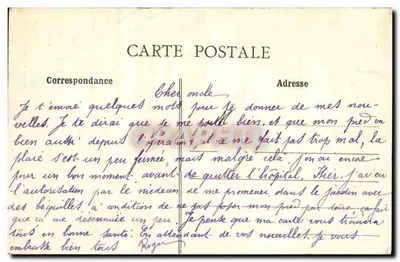 CARTE POSTALE
Correspondance
Adresse
Cher oncle
Je t'envoie quelques mots pour te donner de mes nou-
velles. Je te dirai que je me porte bien, et que mon pied va
bien aussi depuis l'opération, et ne me fait pas trop mal, la
place s'est un peu fermée, mais malgré cela, j'en ai encore
pour un bon moment, avant de quitter l'hôpital. Hier, j'ai eu
l'autorisation par le médecin de me promener dans le jardin avec
des béquilles à conditions de ne pas poser mon pied par terre, ça fait
que ça me désennuie un peu. Je pense que ma carte vous trouvera
tous en bonne santé. En attendant de vos nouvelles, je vous
embrasse bien tous Roger